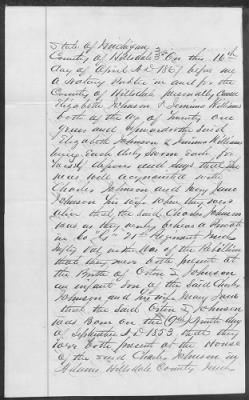 State of Michigan
County of Hillsdale SS On this 16th
day of April A D 1867 before me
a Notary Public in and for the
County of Hillsdale personally Came
Elizabeth Johnson & Jemima Williams
both of the age of twenty one
years and upwards the said
Elizabeth Johnson & Jemima Williams
being Each duly sworn Each for
himself deposes and says that I
was well acquainted with
Charles Johnson and Mary Jane
Johnson his wife when they were
alive that the said Charles Johnson
was as they verily believe a Private
in Co "G" Regiment
Vol in the War of the Rebellion
that they were both present at
the Birth of Orten J Johnson
an infant son of the said Charles
Johnson and his wife Mary Jane
that the said Orten J Johnson
was Born on the 19th day
of September A D 1853 that they
were both present at the House
of the said Charles Johnson in
Adams Hillsdale County Mich